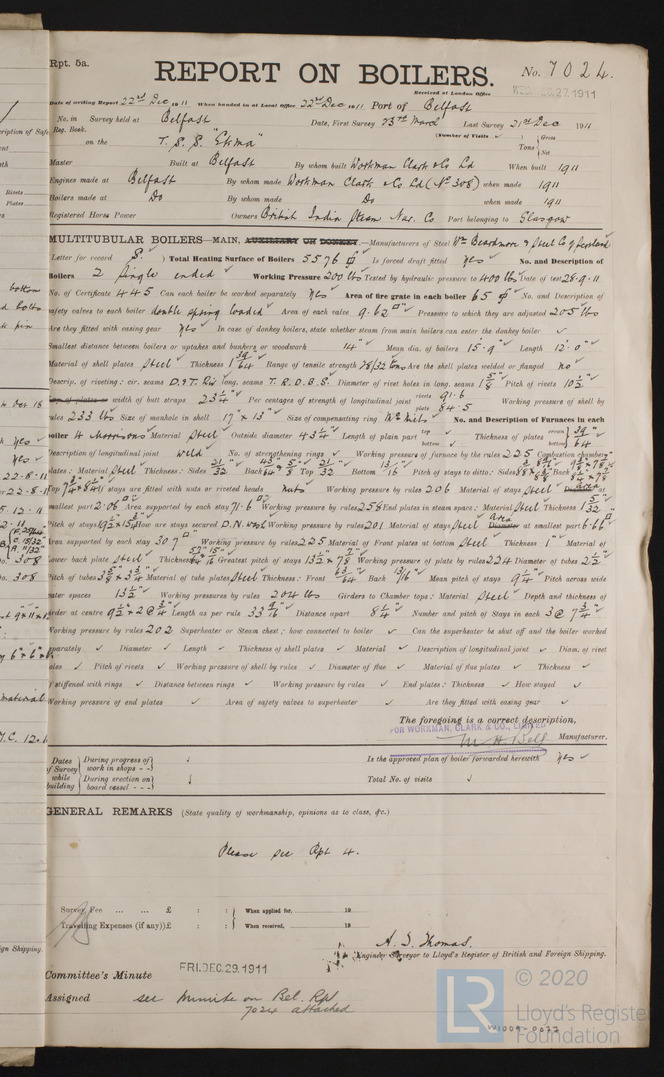 Rpt. 5a.
REPORT ON BOILERS.
No. 7024.
Received at London Office WED. DEC. 27. 1911
Date of writing Report 22nd Dec 1911 When handed in at Local Office 22nd Dec 1911. Port of Belfast
No. in Survey held at Belfast Date, First Survey 23rd March Last Survey 21st Dec 1911
Reg. Book. (Number of Visits ✓)
on the T. S. S. "Ekma" Tons { Gross Net
Master Built at Belfast By whom built Workman Clark & Co. Ld When built 1911
Engines made at Belfast By whom made Workman Clark & Co. Ld (No 308) when made 1911
Boilers made at Do By whom made Do when made 1911
Registered Horse Power Owners British India Steam Nav. Co Port belonging to Glasgow
MULTITUBULAR BOILERS—MAIN, AUXILIARY OR DONKEY.—Manufacturers of Steel Wm Beardmore & Steel Co of Scotland
(Letter for record S. ) Total Heating Surface of Boilers 5576 ☐' Is forced draft fitted yes No. and Description of
Boilers 2 Single ended Working Pressure 200 lbs Tested by hydraulic pressure to 400 lbs Date of test 28.9.11
No. of Certificate 445 Can each boiler be worked separately Yes Area of fire grate in each boiler 65 ☐' No. and Description of
safety valves to each boiler double spring loaded Area of each valve 9.62 ☐" Pressure to which they are adjusted 205 lbs
Are they fitted with easing gear Yes In case of donkey boilers, state whether steam from main boilers can enter the donkey boiler ✓
Smallest distance between boilers or uptakes and bunkers or woodwork 14" Mean dia. of boilers 15'-9" Length 12'-0"
Material of shell plates Steel Thickness 1 39/64 Range of tensile strength 28/32 tons Are the shell plates welded or flanged no
Descrip. of riveting: cir. seams D. & T. Riv long. seams T. R. D. B. S. Diameter of rivet holes in long. seams 1 5/8 Pitch of rivets 10 1/2"
Lap of plates or width of butt straps 23 1/4" Per centages of strength of longitudinal joint rivets 91.6 plate 84.5 Working pressure of shell by
rules 233 lbs Size of manhole in shell 17" x 13" Size of compensating ring No. and Description of Furnaces in each
boiler 4 Morrisons Material Steel Outside diameter 43 1/4" Length of plain part top bottom Thickness of plates crown bottom } 39/64
Description of longitudinal joint weld No. of strengthening rings ✓ Working pressure of furnace by the rules 225 Combustion chamber
plates: Material Steel Thickness: Sides 21/32 Back Top 21/32 Bottom 13/16 Pitch of stays to ditto: Sides Back
Top If stays are fitted with nuts or riveted heads nuts Working pressure by rules 206 Material of stays Steel Diameter Area at
smallest part 2.06 ☐" Area supported by each stay 71.6 Working pressure by rules 258 End plates in steam space: Material Steel Thickness 1 5/32
Pitch of stays How are stays secured D. N. Working pressure by rules 201 Material of stays Steel Diameter Area at smallest part 6.66 ☐"
Area supported by each stay 307 ☐" Working pressure by rules 225 Material of Front plates at bottom Steel Thickness 1" Material of
Lower back plate Steel Thickness Greatest pitch of stays 13 1/2 x 7 7/8 Working pressure of plate by rules 224 Diameter of tubes 2 1/2"
Pitch of tubes Material of tube plates Steel Thickness: Front 63/64 Back 13/16 Mean pitch of stays 9 1/4" Pitch across wide
water spaces 13 1/2" Working pressures by rules 204 lbs Girders to Chamber tops: Material Steel Depth and thickness of
girder at centre 9 1/2" x 2 @ 3/4" Length as per rule Distance apart 8 1/4" Number and pitch of Stays in each 3 @ 7 3/4"
Working pressure by rules 202 Superheater or Steam chest; how connected to boiler ✓ Can the superheater be shut off and the boiler worked
separately ✓ Diameter ✓ Length ✓ Thickness of shell plates ✓ Material ✓ Description of longitudinal joint ✓ Diam. of rivet
holes ✓ Pitch of rivets ✓ Working pressure of shell by rules ✓ Diameter of flue ✓ Material of flue plates ✓ Thickness ✓
If stiffened with rings ✓ Distance between rings ✓ Working pressure by rules ✓ End plates: Thickness ✓ How stayed ✓
Working pressure of end plates ✓ Area of safety valves to superheater ✓ Are they fitted with easing gear ✓
The foregoing is a correct description,
FOR WORKMAN, CLARK & CO., LIMITED
M H Bell Manufacturer.
Dates of Survey while building { During progress of work in shops - - } ✓ Is the approved plan of boiler forwarded herewith Yes ✓
{ During erection on board vessel - - - } ✓ Total No. of visits ✓
GENERAL REMARKS (State quality of workmanship, opinions as to class, &c.)
Please see Rpt 4.
Survey Fee ... ... £ : : } When applied for, 19
Travelling Expenses (if any) £ : : } When received, 19
A. J. Thomas.
Engineer Surveyor to Lloyd's Register of British and Foreign Shipping.
Committee's Minute FRI. DEC. 29. 1911
Assigned see minute on Bel. Rpt
7024 attached
© 2020
LR
Lloyd's Register
Foundation
W1009-0022